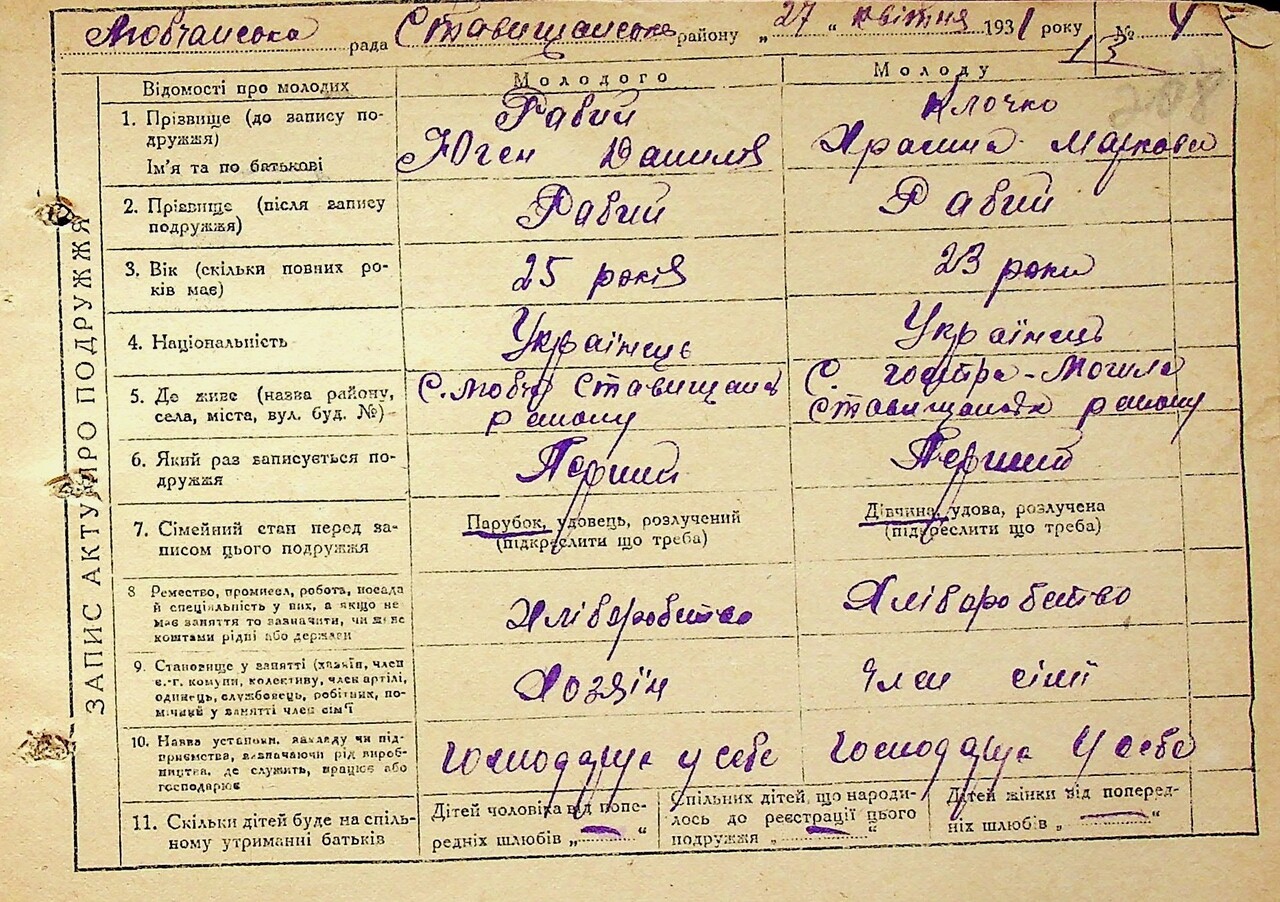 Любчанська рада Ставищанськ району „ 27 “ квітня 1931 року № 4
13
208
ЗАПИС АКТУ ПРО ПОДРУЖЖЯ
Відомості про молодих
Молодого
Молоду
1. Прізвище (до запису по-
дружжя)
Ім'я та по батькові
Рабий
Юген Данилів
Клочко
Храсина Маркови
2. Прізвище (після запису
подружжя)
Рабий
Рабий
3. Вік (скільки повних ро-
ків має)
25 років
23 роки
4. Національність
Українець
Українець
5. Де живе (назва району,
села, міста, вул. буд. №)
С. Любча Ставищанs
району
С. Гостра-Могила
Ставищанськ району
6. Який раз записується по-
дружжя
Перший
Перший
7. Сімейний стан перед за-
писом цього подружжя
Парубок, удовець, розлучений
(підкреслити що треба)
Дівчина, удова, розлучена
(підкреслити що треба)
8 Ремество, промисел, робота, посада
й спеціяльність у них, а якщо не
має заняття то зазначити, чи живе
коштами рідні або держави
Хліборобство
Хліборобство
9. Становище у занятті (хазяїн, член
с.-г. комуни, колективу, член артілі,
одинець, службовець, робітник, по-
мічний у занятті член сім'ї
Хозяїн
Член сімї
10. Назва установи, закладу чи під-
приємства, визначаючи рід вироб-
ництва, де служить, працює або
господарює
Господарує у себе
Господарує у себе
11. Скільки дітей буде на спіль-
ному утриманні батьків
Дітей чоловіка від попе-
редніх шлюбів „ — “
Спільних дітей, що народи-
лось до реєстрації цього
подружжя „ — “
Дітей жінки від поперед-
ніх шлюбів „ — “